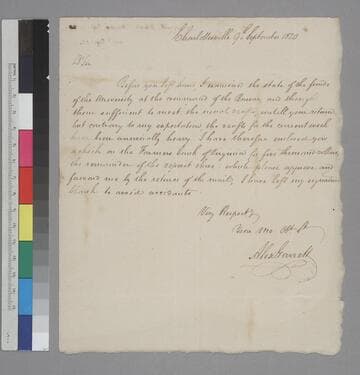 Charlottesville 9th September 1820
Sir
Before you left home I examined the state of the funds
of the University at the command of the Bursar and thought
them sufficient to meet the usual drafts until your return
but contrary to my expectations the drafts for the current week
have been unusually heavy. I have therefore enclosed you
a check on the Farmers bank of Virginia for five thousand dollars
the remainder of the deposit there, which please approve and
forward me by the return of the mail, I have left my signature
blank to avoid accidents
Very Respectfy
Your Mo. Obt. St.
Alex Garrett